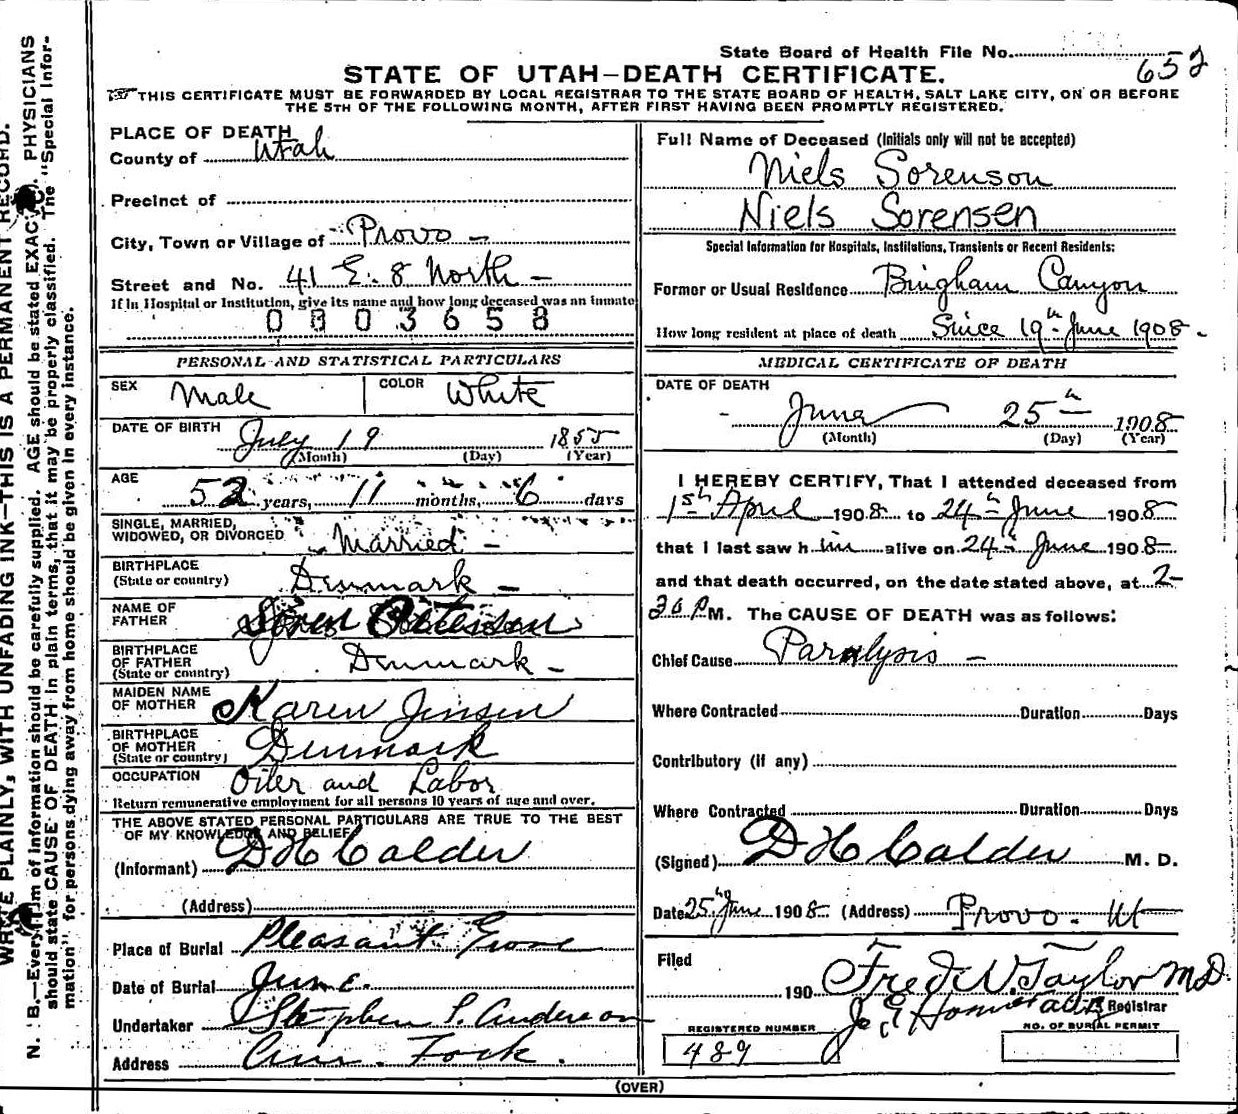 State Board of Health File No. 652
STATE OF UTAH—DEATH CERTIFICATE.
THIS CERTIFICATE MUST BE FORWARDED BY LOCAL REGISTRAR TO THE STATE BOARD OF HEALTH, SALT LAKE CITY, ON OR BEFORE
THE 5TH OF THE FOLLOWING MONTH, AFTER FIRST HAVING BEEN PROMPTLY REGISTERED.
PLACE OF DEATH
County of Utah
Precinct of
City, Town or Village of Provo —
Street and No. 41 E. 8 North —
If in Hospital or Institution, give its name and how long deceased was an inmate
0003658
PERSONAL AND STATISTICAL PARTICULARS
SEX Male COLOR White
DATE OF BIRTH July 19 1855
(Month) (Day) (Year)
AGE 52 years, 11 months, 6 days
SINGLE, MARRIED,
WIDOWED, OR DIVORCED Married —
BIRTHPLACE
(State or country) Denmark —
NAME OF
FATHER Soren
BIRTHPLACE
OF FATHER
(State or country) Denmark —
MAIDEN NAME
OF MOTHER Karen Jensen
BIRTHPLACE
OF MOTHER
(State or country) Denmark
OCCUPATION Oiler and Labor
Return remunerative employment for all persons 10 years of age and over.
THE ABOVE STATED PERSONAL PARTICULARS ARE TRUE TO THE BEST
OF MY KNOWLEDGE AND BELIEF
(Informant) D H Calder
(Address)
Place of Burial Pleasant Grove
Date of Burial June.
Undertaker Stephen L. Anderson
Address Am. Fork.
Full Name of Deceased (Initials only will not be accepted)
Niels Sorenson
Niels Sorensen
Special Information for Hospitals, Institutions, Transients or Recent Residents:
Former or Usual Residence Bingham Canyon
How long resident at place of death Since 19th June 1908.
MEDICAL CERTIFICATE OF DEATH
DATE OF DEATH
June 25th 1908
(Month) (Day) (Year)
I HEREBY CERTIFY, That I attended deceased from
1st April 1908 to 24th June 1908
that I last saw him alive on 24th June 1908
and that death occurred, on the date stated above, at 2-
P M. The CAUSE OF DEATH was as follows:
Chief Cause Paralysis —
Where Contracted Duration Days
Contributory (if any)
Where Contracted Duration Days
(Signed) D H Calder M. D.
Date 25 June 1908 (Address) Provo. Ut
Filed
190 Fred W. Taylor MD
Registrar
REGISTERED NUMBER
489
NO. OF BURIAL PERMIT
(OVER)
WRITE PLAINLY, WITH UNFADING INK—THIS IS A PERMANENT RECORD.
N. B.—Every item of information should be carefully supplied. AGE should be stated EXACTLY. PHYSICIANS
should state CAUSE OF DEATH in plain terms, that it may be properly classified. The "Special Infor-
mation" for persons dying away from home should be given in every instance.